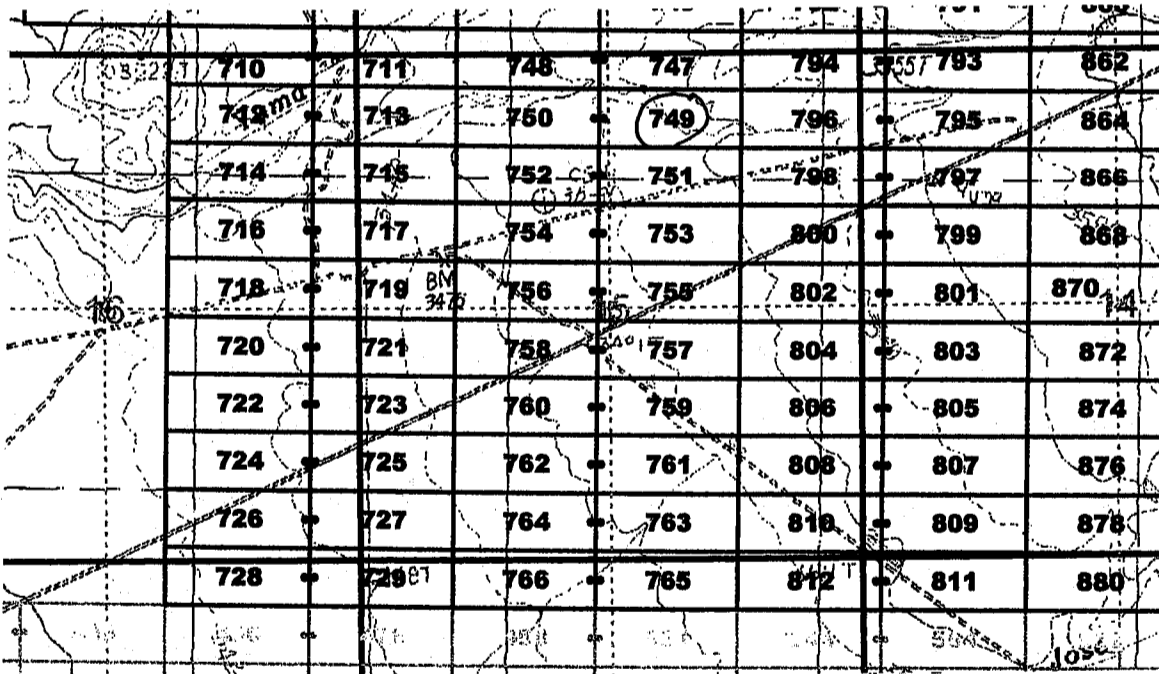 710 711 748 747 794 793 862
712 713 750 749 796 795 864
714 715 752 751 798 797 866
716 717 754 753 800 799 868
718 719 756 755 802 801 870
BM
3476
16 15 14
720 721 758 757 804 803 872
722 723 760 759 806 805 874
724 725 762 761 808 807 876
726 727 764 763 810 809 878
728 729 766 765 812 811 880
Jose